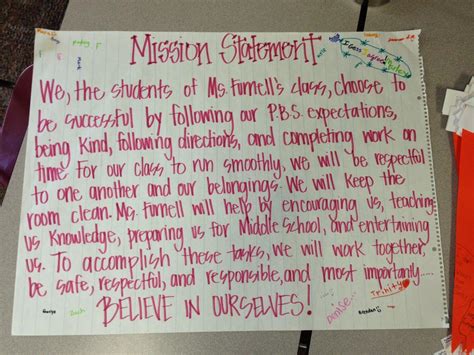 Mission Statement
We, the students of Ms. Furnell's class, choose to
be successful by following our P.B.S. expectations,
being kind, following directions, and completing work on
time. For our class to run smoothly, we will be respectful
to one another and our belongings. We will keep the
room clean. Ms. Furnell will help by encouraging us, teaching
us knowledge, preparing us for Middle School, and entertaining
us. To accomplish these tasks, we will work together,
be safe, respectful, and responsible, and most importantly.....
BELIEVE IN OURSELVES!
Denise
Trinity